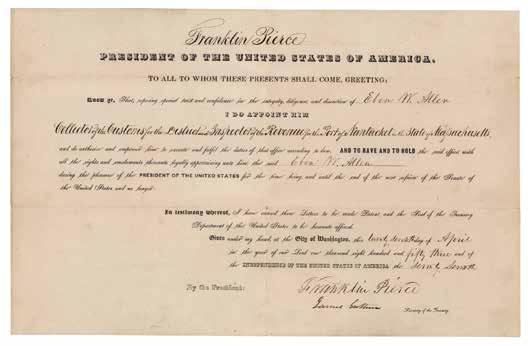 Franklin Pierce
PRESIDENT OF THE UNITED STATES OF AMERICA.
TO ALL TO WHOM THESE PRESENTS SHALL COME, GREETING:
Know ye, That, reposing special trust and confidence in the integrity, diligence, and discretion of Eben W. Allen
I DO APPOINT HIM
Collector of the Customs for the District and Inspector of the Revenue for the Port of Nantucket in the State of Massachusetts
and do authorize and empower him to execute and fulfil the duties of that office according to law; AND TO HAVE AND TO HOLD the said office with
all the rights and emoluments thereunto legally appertaining unto him the said Eben W. Allen
during the pleasure of the PRESIDENT OF THE UNITED STATES for the time being, and until the end of the next session of the Senate of
the United States and no longer.
In testimony whereof, I have caused these Letters to be made Patent, and the Seal of the Treasury
Department of the United States to be hereunto affixed.
Given under my hand, at the City of Washington, this twenty second day of April
in the year of our Lord one thousand eight hundred and fifty three and of
the INDEPENDENCE OF THE UNITED STATES OF AMERICA the seventy seventh
Franklin Pierce
By the President:
James Guthrie
Secretary of the Treasury.